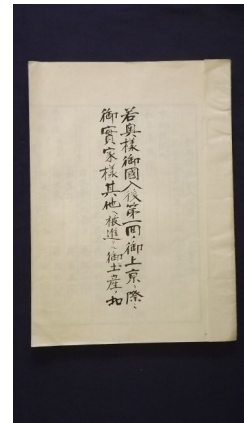 若奥様御國入後第一回ノ御上京ノ際ニ
御實家様其他ヘ被進シ御土産ノ扣